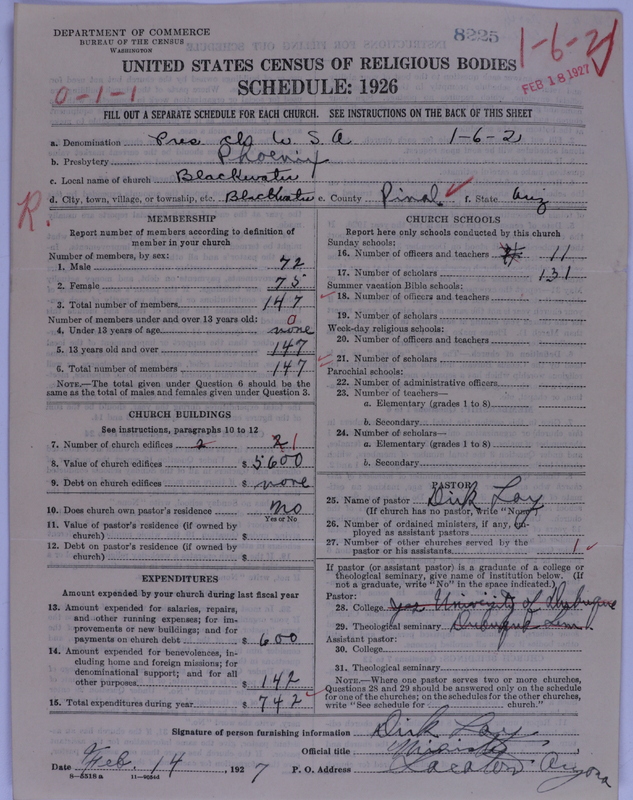 DEPARTMENT OF COMMERCE
BUREAU OF THE CENSUS
WASHINGTON
8225
1-6-2
FEB 18 1927
UNITED STATES CENSUS OF RELIGIOUS BODIES
SCHEDULE: 1926
0-1-1
FILL OUT A SEPARATE SCHEDULE FOR EACH CHURCH. SEE INSTRUCTIONS ON THE BACK OF THIS SHEET
a. Denomination Pres. ch U. S. A 1-6-2
b. Presbytery Phoenix
c. Local name of church Blackwater
d. City, town, village, or township, etc. Blackwater e. County Pinal f. State Ariz
R.
MEMBERSHIP
Report number of members according to definition of member in your church
Number of members, by sex:
1. Male 72
2. Female 75
3. Total number of members 147
Number of members under and over 13 years old: 0
4. Under 13 years of age none
5. 13 years old and over 147
6. Total number of members 147
NOTE.—The total given under Question 6 should be the same as the total of males and females given under Question 3.
CHURCH BUILDINGS
See instructions, paragraphs 10 to 12
7. Number of church edifices 2 2 1
8. Value of church edifices $ 5600
9. Debt on church edifices $ none
10. Does church own pastor's residence no
Yes or No
11. Value of pastor's residence (if owned by church) $
12. Debt on pastor's residence (if owned by church) $
EXPENDITURES
Amount expended by your church during last fiscal year
13. Amount expended for salaries, repairs, and other running expenses; for improvements or new buildings; and for payments on church debt $ 600
14. Amount expended for benevolences, including home and foreign missions; for denominational support; and for all other purposes $ 142
15. Total expenditures during year $ 742
CHURCH SCHOOLS
Report here only schools conducted by this church
Sunday schools:
16. Number of officers and teachers 11
17. Number of scholars 131
Summer vacation Bible schools:
18. Number of officers and teachers
19. Number of scholars
Week-day religious schools:
20. Number of officers and teachers
21. Number of scholars
Parochial schools:
22. Number of administrative officers
23. Number of teachers—
a. Elementary (grades 1 to 8)
b. Secondary
24. Number of scholars—
a. Elementary (grades 1 to 8)
b. Secondary
PASTOR
25. Name of pastor Dirk Lay
(If church has no pastor, write "None")
26. Number of ordained ministers, if any, employed as assistant pastors
27. Number of other churches served by the pastor or his assistants 1
If pastor (or assistant pastor) is a graduate of a college or theological seminary, give name of institution below. (If not a graduate, write "No" in the space indicated.)
Pastor:
28. College yes University of Dubuque
29. Theological seminary Dubuque Sem
Assistant pastor:
30. College
31. Theological seminary
NOTE.—Where one pastor serves two or more churches, Questions 28 and 29 should be answered only on the schedule for one of the churches; on the schedules for the other churches, write "See schedule for church."
Signature of person furnishing information Dirk Lay
Official title
Date Feb. 14, 1927 P. O. Address Sacaton Arizona
8—5518a